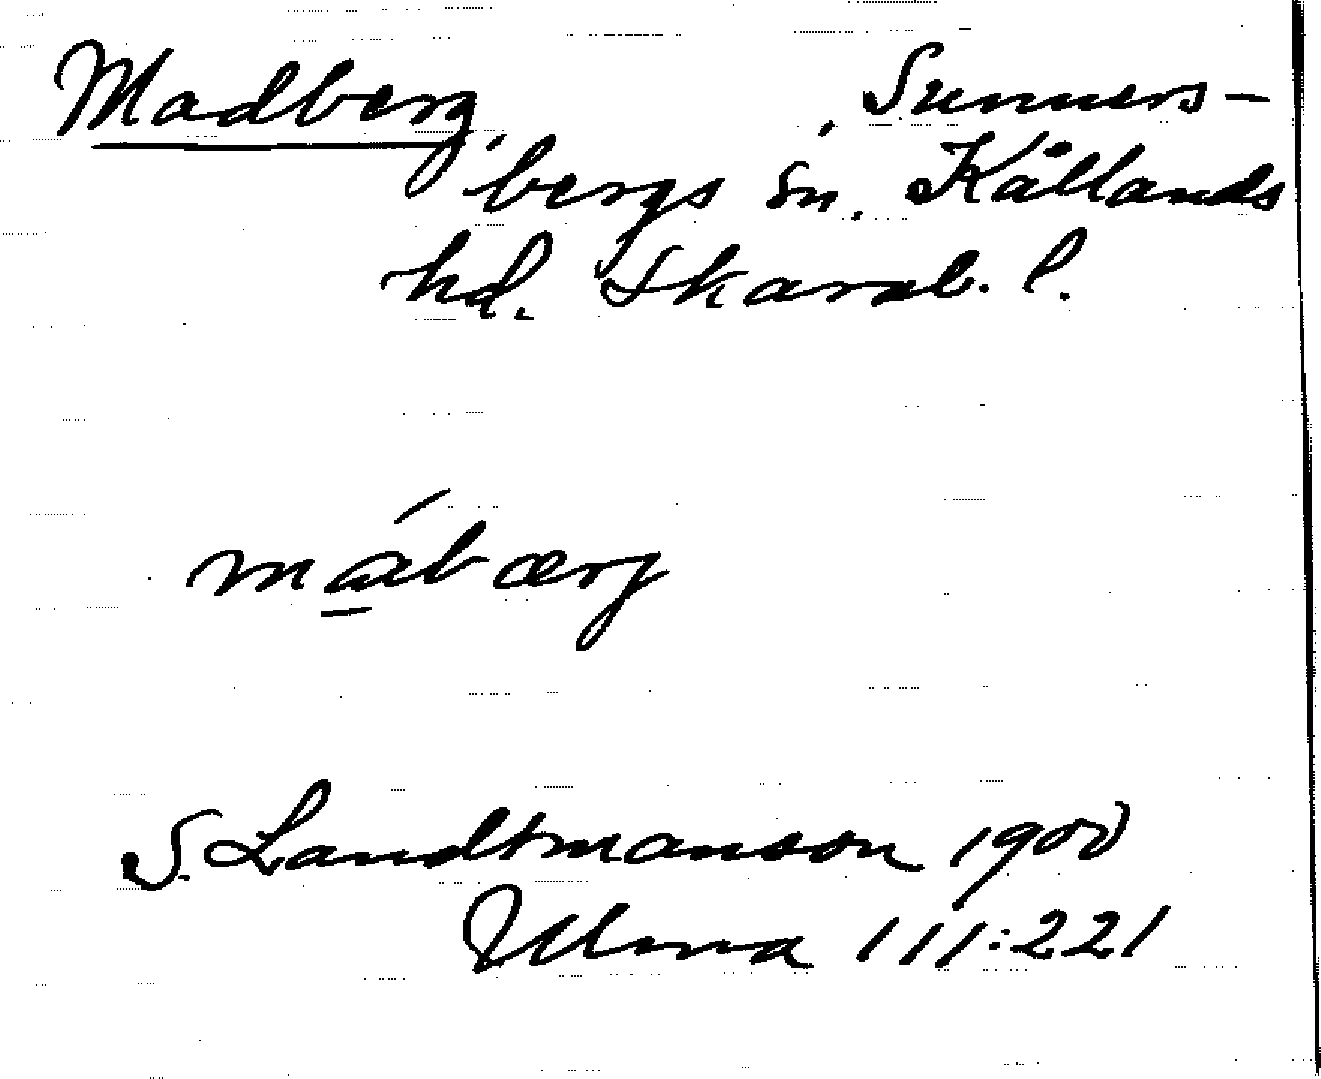 Madberg, Sunners-
bergs sn. Kållands
hd. Skarab. l.
má̱bærg
S. Landtmanson 1900
Ulma 111:221